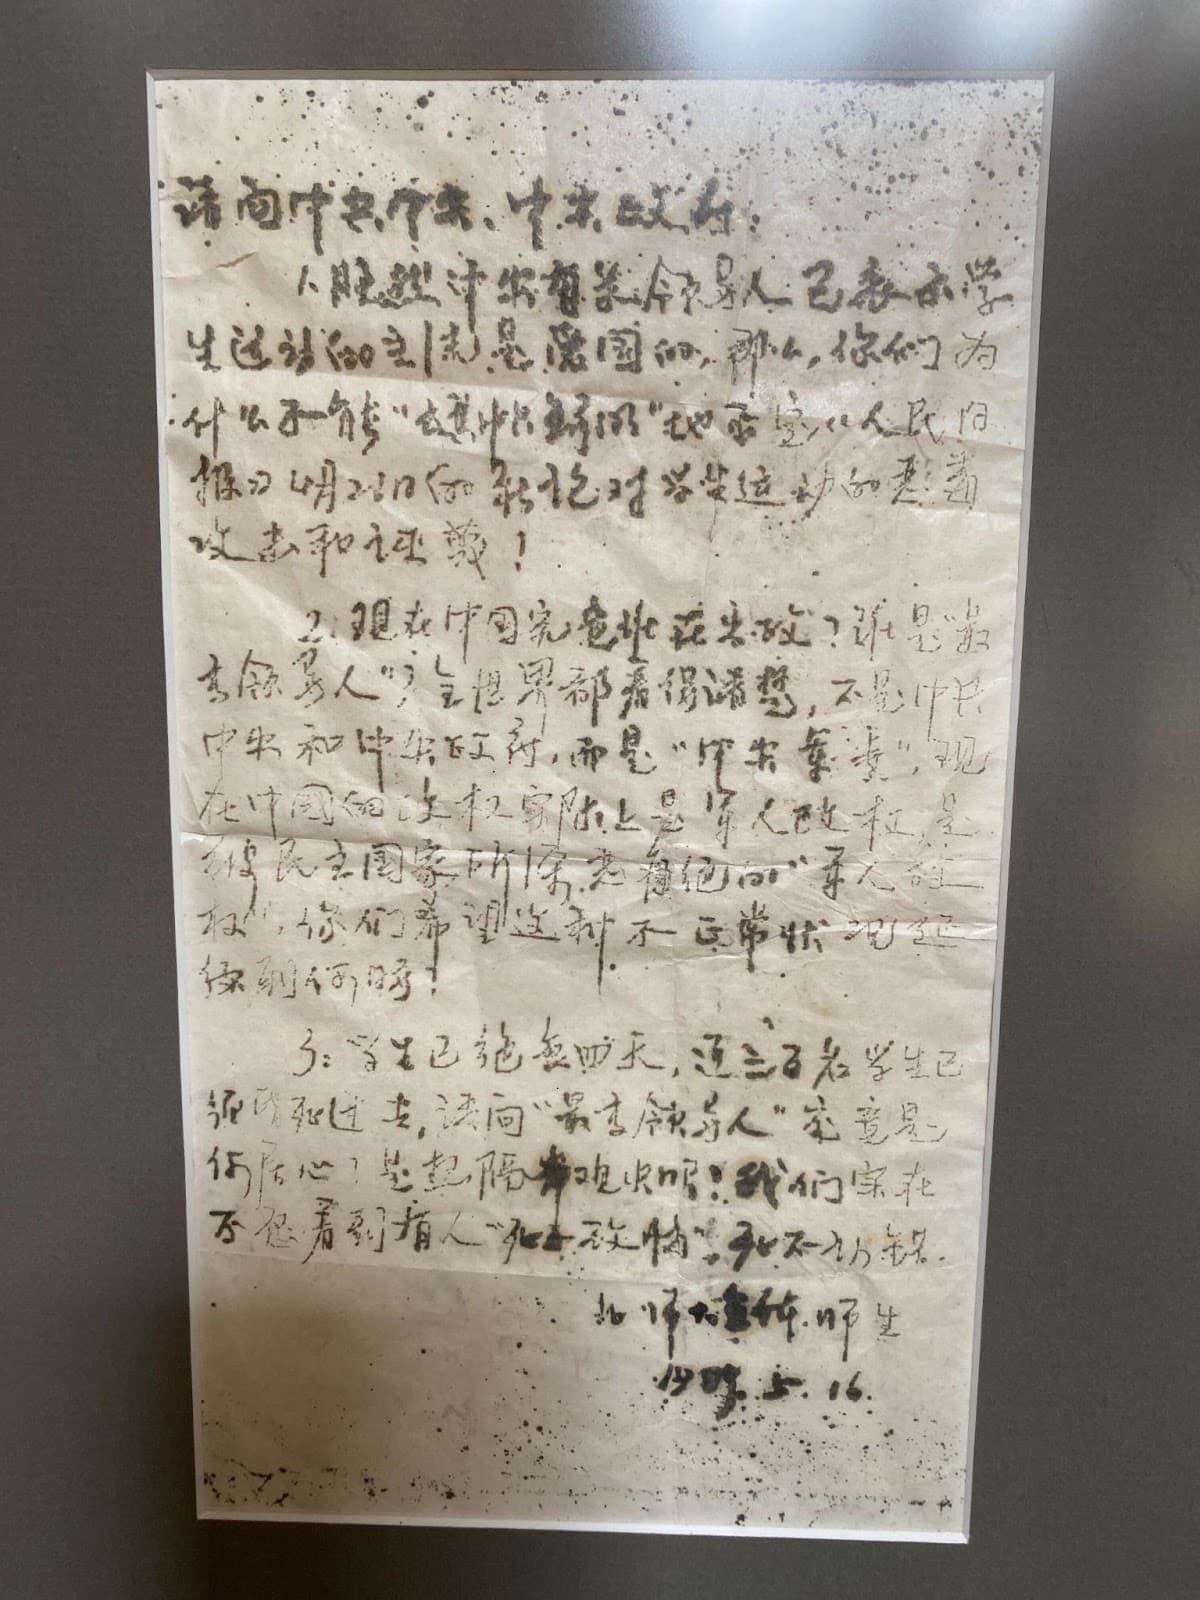 请问中共中央、中央政府:
1、既然中央有关领导人已表示学
生运动的主流是爱国的,那么,你们为
什么不能"旗帜鲜明"地否定《人民日
报》4月26日的社论对学生运动的恶毒
攻击和诬蔑!
2、现在中国究竟谁在当政?谁是"最
高领导人"?全世界都看得清楚,不是中共
中央和中央政府,而是"中央军委",现
在中国的政权实际上是军人政权,是
被民主国家所深恶痛绝的"军人政
权",你们希望这种不正常状况延
续到何时?
3、学生已绝食四天,近三百名学生已
昏死过去,请问"最高领导人"究竟是
何居心?是想隔岸观火吗?我们实在
不忍看到有人"死不改悔",死不认错.
北师大全体师生
1989.5.16.